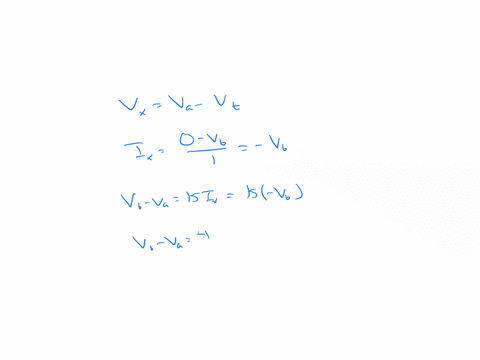 Vₓ = Vₐ - Vₜ
Iₓ = (0 - V_b)/1 = - V_b
V_b - Vₐ = 15 Iₓ = 15(-V_b)
V_b - Vₐ = -1